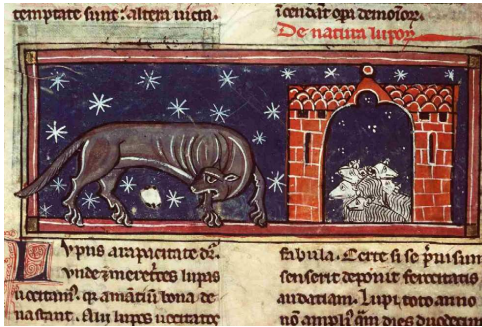 temptate sunt: altera uicta.
icendat opa demonioꝝ.
De natura lupoꝝ
Lupus a rapacitate dꝛ.
Vnde ⁊ meretrices lupas
uocitam᷒. qꝛ amantiū bona de
uastant. Alii lupos uocitatos
fabula. Certe si se p̄uisum
senserit deponit ferocitatis
audatiam. Lupi toto anno
nō ampliꝰ qm̄ dies duodecim